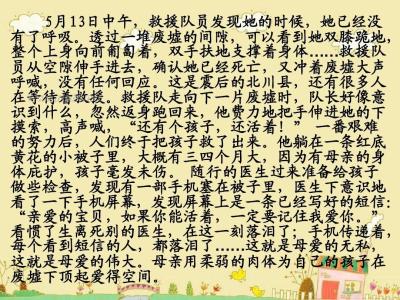 5月13日中午，救援队员发现她的时候，她已经没
有了呼吸。透过一堆废墟的间隙，可以看到她双膝跪地，
整个上身向前匍匐着，双手扶地支撑着身体......救援队
员从空隙伸手进去，确认她已经死亡，又冲着废墟大声
呼喊，没有任何回应。这是震后的北川县，还有很多人
在等待着救援。救援队走向下一片废墟时，队长好像意
识到什么，忽然返身跑回来，他费力地把手伸进她的下
摸索，高声喊，“还有个孩子，还活着！” 一番艰难
的努力后，人们终于把孩子救了出来。他躺在一条红底
黄花的小被子里，大概有三四个月大，因为有母亲的身
体庇护，孩子毫发未伤。 随行的医生过来准备给孩子
做些检查，发现有一部手机塞在被子里，医生下意识地
看了一下手机屏幕，发现屏幕上是一条已经写好的短信：
“亲爱的宝贝，如果你能活着，一定要记住我爱你。”
看惯了生离死别的医生，在这一刻落泪了；手机传递着，
每个看到短信的人，都落泪了......这就是母爱的无私，
这就是母爱的伟大。母亲用柔弱的肉体为自己的孩子在
废墟下顶起爱得空间。